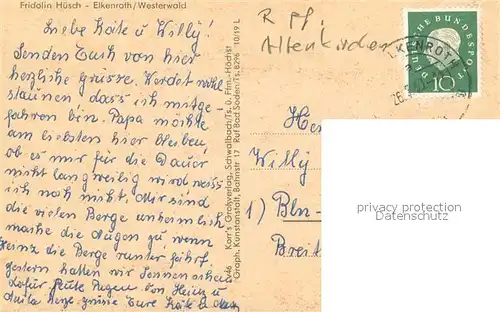 Fridolin Hüsch - Elkenroth/Westerwald
Liebe Käte u. Willy!
Senden Euch von hier
herzliche grüsse. Werdet wohl
staunen dass ich mitge-
fahren bin. Papa möchte
am liebsten hier bleiben,
ob es mir für die Dauer
nicht langweilig wird weiss
ich noch nicht. Mir sind
die vielen Berge unheimlich
mache die Augen zu wenn
Heinz die Berge runter fährt.
gestern hatten wir Sonnenschein
dafür heute Regen von Heinz u
Anita herzl grüsse Eure Käte u
Korr's Grafverlag, Schwalbach/Ts. üb. Ffm.-Höchst
Graph. Kunstanstalt, Bahnstr. 17 Ruf Bad Soden/Ts. 8296 10/19 L
R Pf.
Altenkirchen
DEUTSCHE BUNDESPOST
10
ELKENROTH
26.
Her
Willy
1) Bln-
Breit
privacy protection
Datenschutz